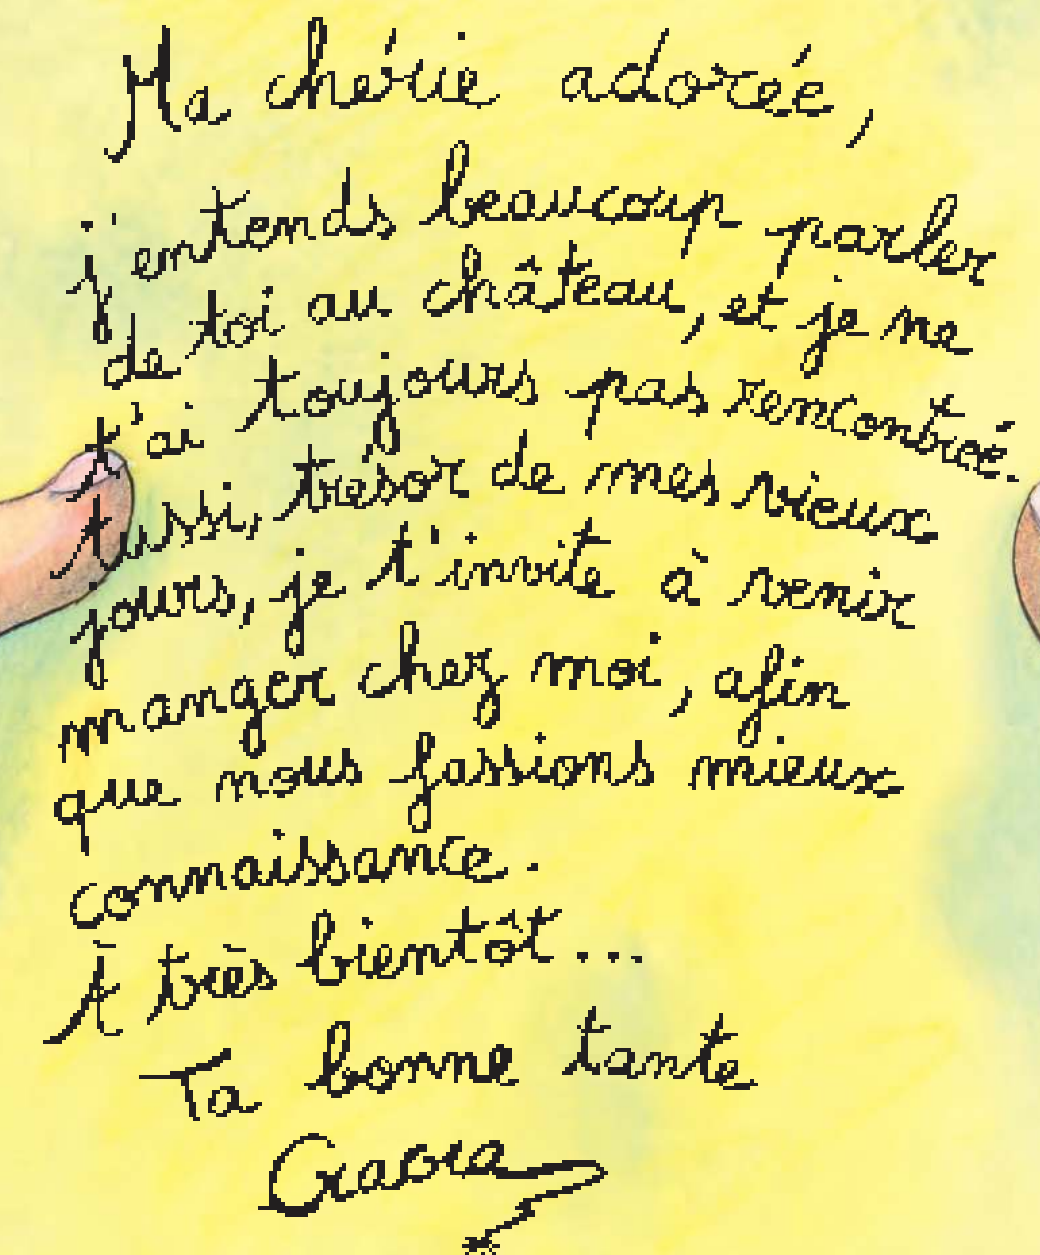 Ma chérie adorée,
j'entends beaucoup parler
de toi au château, et je ne
t'ai toujours pas rencontré.
Aussi, trésor de mes vieux
jours, je t'invite à venir
manger chez moi, afin
que nous fassions mieux
connaissance.
À très bientôt...
Ta bonne tante